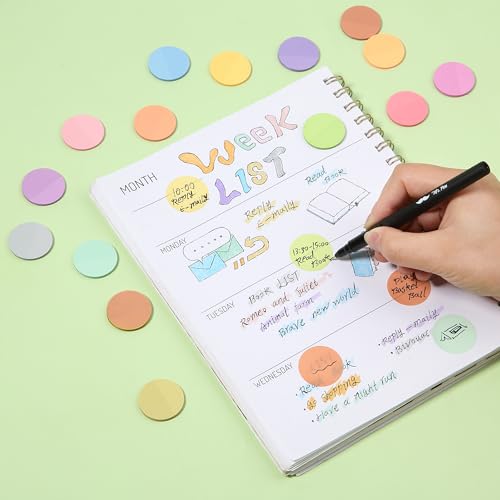 Week
LIST
MONTH
10:00
Read
Book
MONDAY
Reply
E-maily
13:30-15:00
Read
Book
TUESDAY
Book LIST
Romeo and Juliet
Animal farm
Brave new world
Play
Basket
Ball
WEDNESDAY
Reply
• Read Book
• Go shopping
• Have a night run